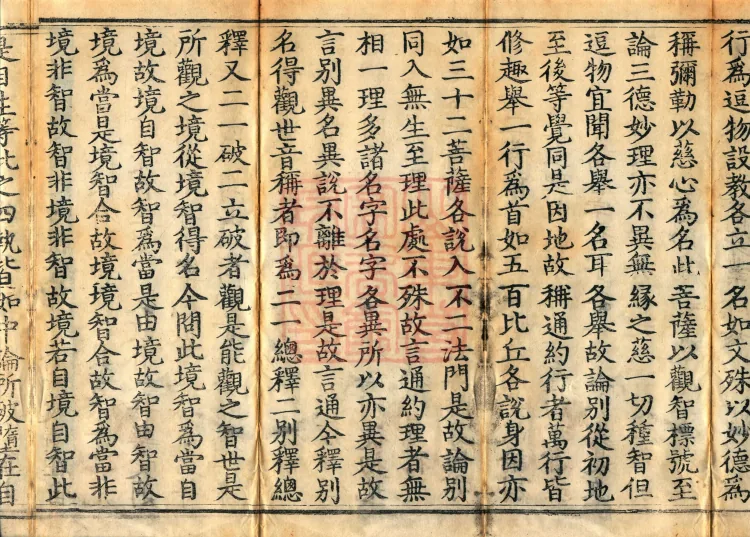 行爲逗物設教各立一名如文殊以妙德爲
稱彌勒以慈心爲名此菩薩以觀智標號至
論三德妙理亦不異無縁之慈一切種智但
逗物宜聞各舉一名耳各舉故論別從初地
至後等覺同是因地故稱通約行者萬行皆
修趣舉一行爲首如五百比丘各說身因亦
如三十二菩薩各說入不二法門是故論別
同入無生至理此處不殊故言通約理者無
相一理多諸名字名字各異所以亦異是故
言別異名異說不離於理是故言通今釋別
名得觀世音稱者即爲二一總釋二別釋總
釋又二一破二立破者觀是能觀之智世是
所觀之境從境智得名今問此境智爲當自
境故境自智故智爲當是由境故智由智故
境爲當是境智合故境境智合故智爲當非
境非智故智非境非智故境若自境自智此
是自性等此之四執皆如中論所破墮在自